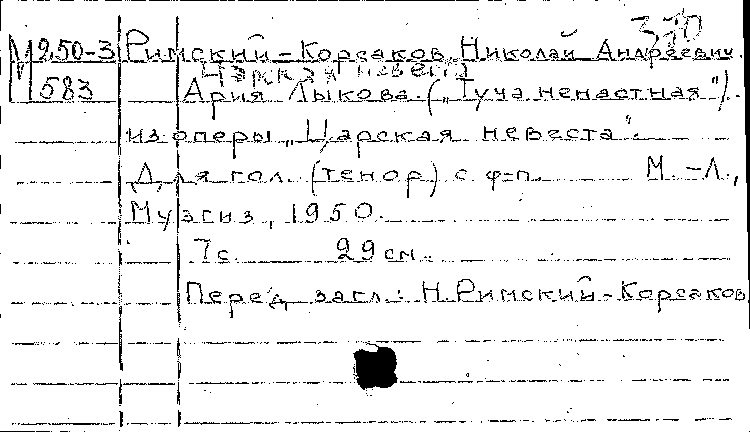 370
М 250-3 Римский-Корсаков, Николай Андреевич.
Царская невеста
М 583 Ария Лыкова („Туча ненастная“).
из оперы „Царская невеста“.
Для гол. (тенор) с ф-п. М.-Л.,
Музгиз, 1950.
7с. 29см.
Перед загл.: Н. Римский-Корсаков